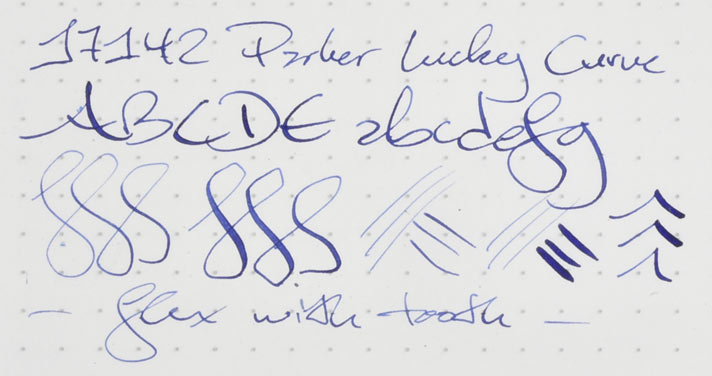 17142 Parker Lucky Curve
ABCDE abcdefg
- flex with tooth -